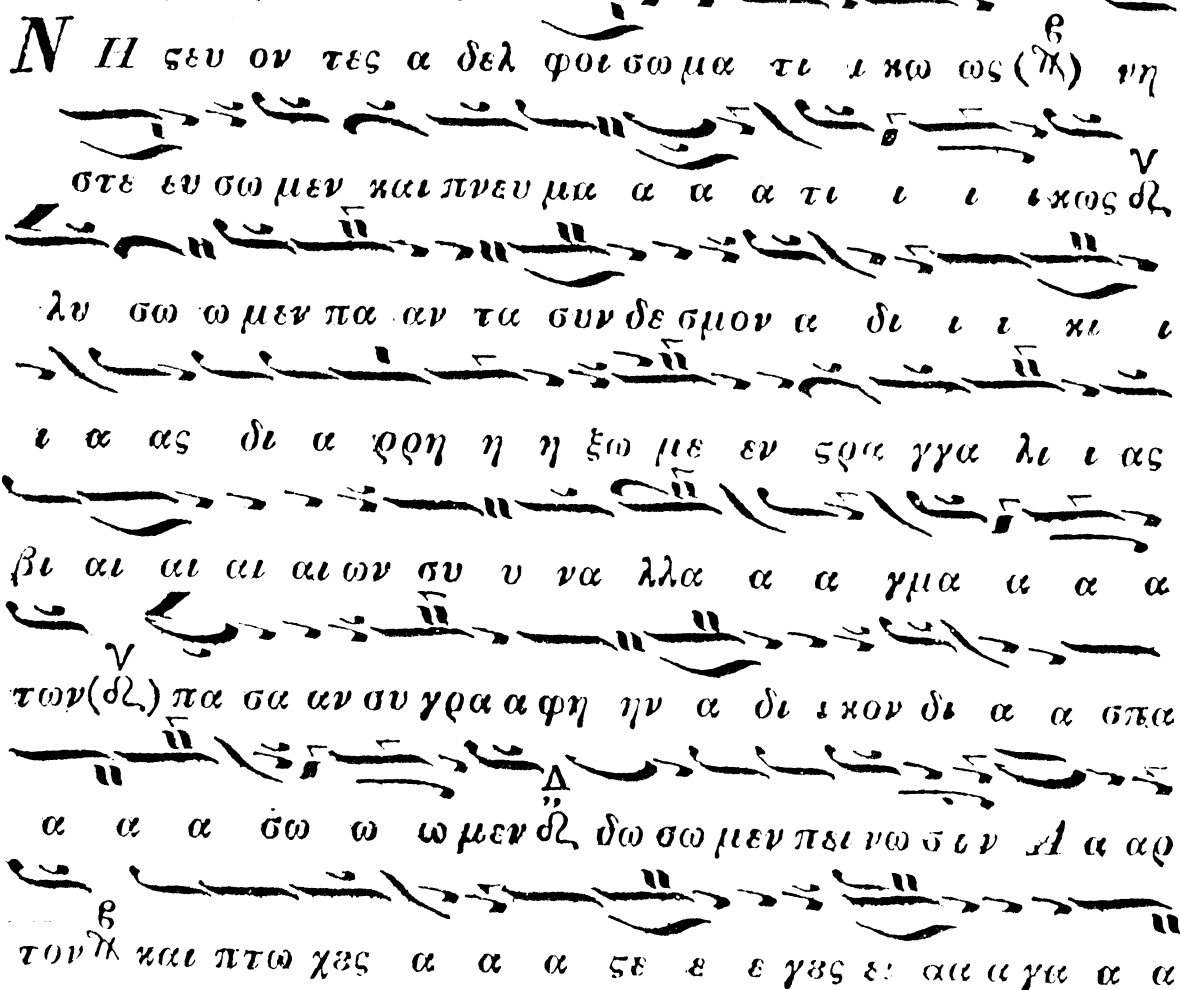 Ν Η ϛευ ον τες α δελ φοι σω μα τι ι κω ως ( ) νη
στε ευ σω μεν και πνευ μα α α α τι ι ι ι κως
λυ σω ω μεν πα αν τα συν δε σμον α δι ι ι κι ι
ι α ας δι α ρρη η η ξω με εν ϛρα γγα λι ι ας
βι αι αι αι αι ων συ υ να λλα α α γμα α α α
των ( ) πα σα αν συ γρα α φη ην α δι ι κον δι α α σπα
α α α σω ω ω μεν δω σω μεν πει νω σι ν Α α αρ
τον και πτω χȣς α α α ϛε ε ε γȣς ει αα α γα α α